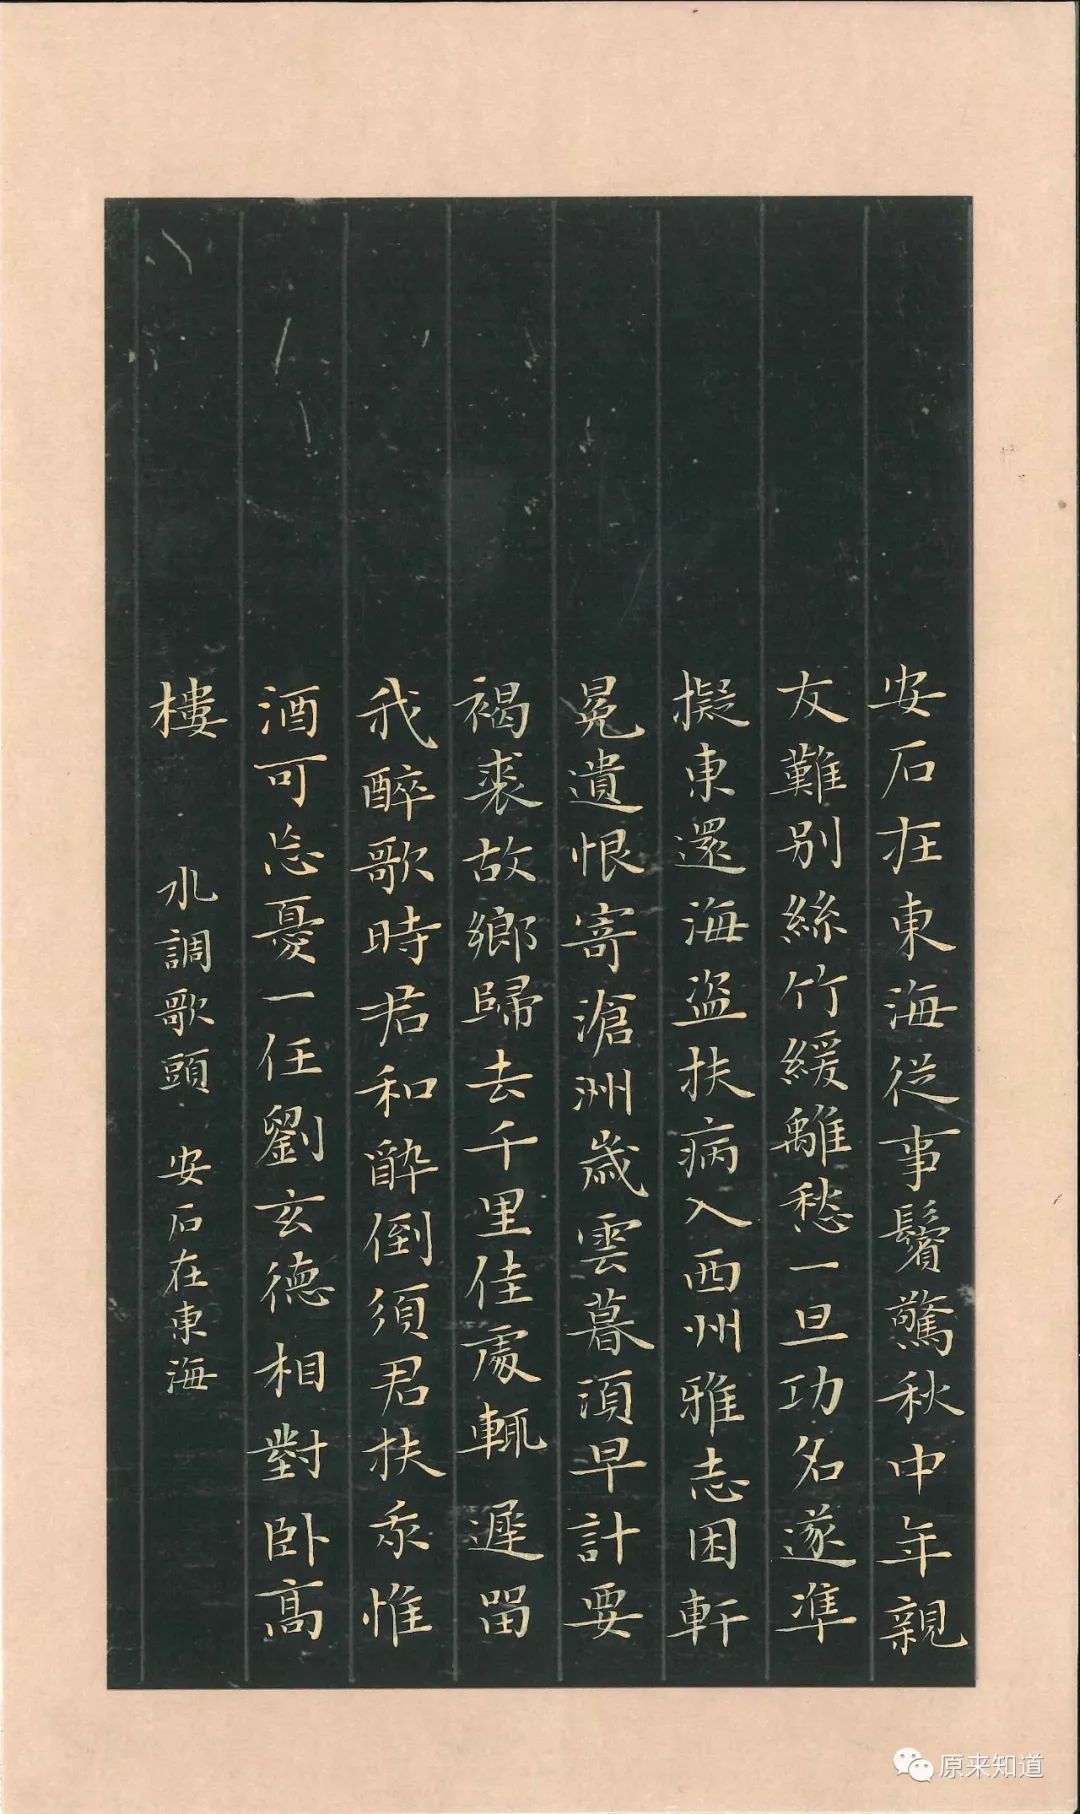 安石在東海從事鬢驚秋中年親
友難別絲竹緩離愁一旦功名遂準
擬東還海盜扶病入西州雅志困軒
冕遺恨寄滄洲歲雲暮須早計要
褐裘故鄉歸去千里佳處輒遲留
我醉歌時君和醉倒須君扶我惟
酒可忘憂一任劉玄德相對臥高
樓 水調歌頭 安石在東海
原来知道